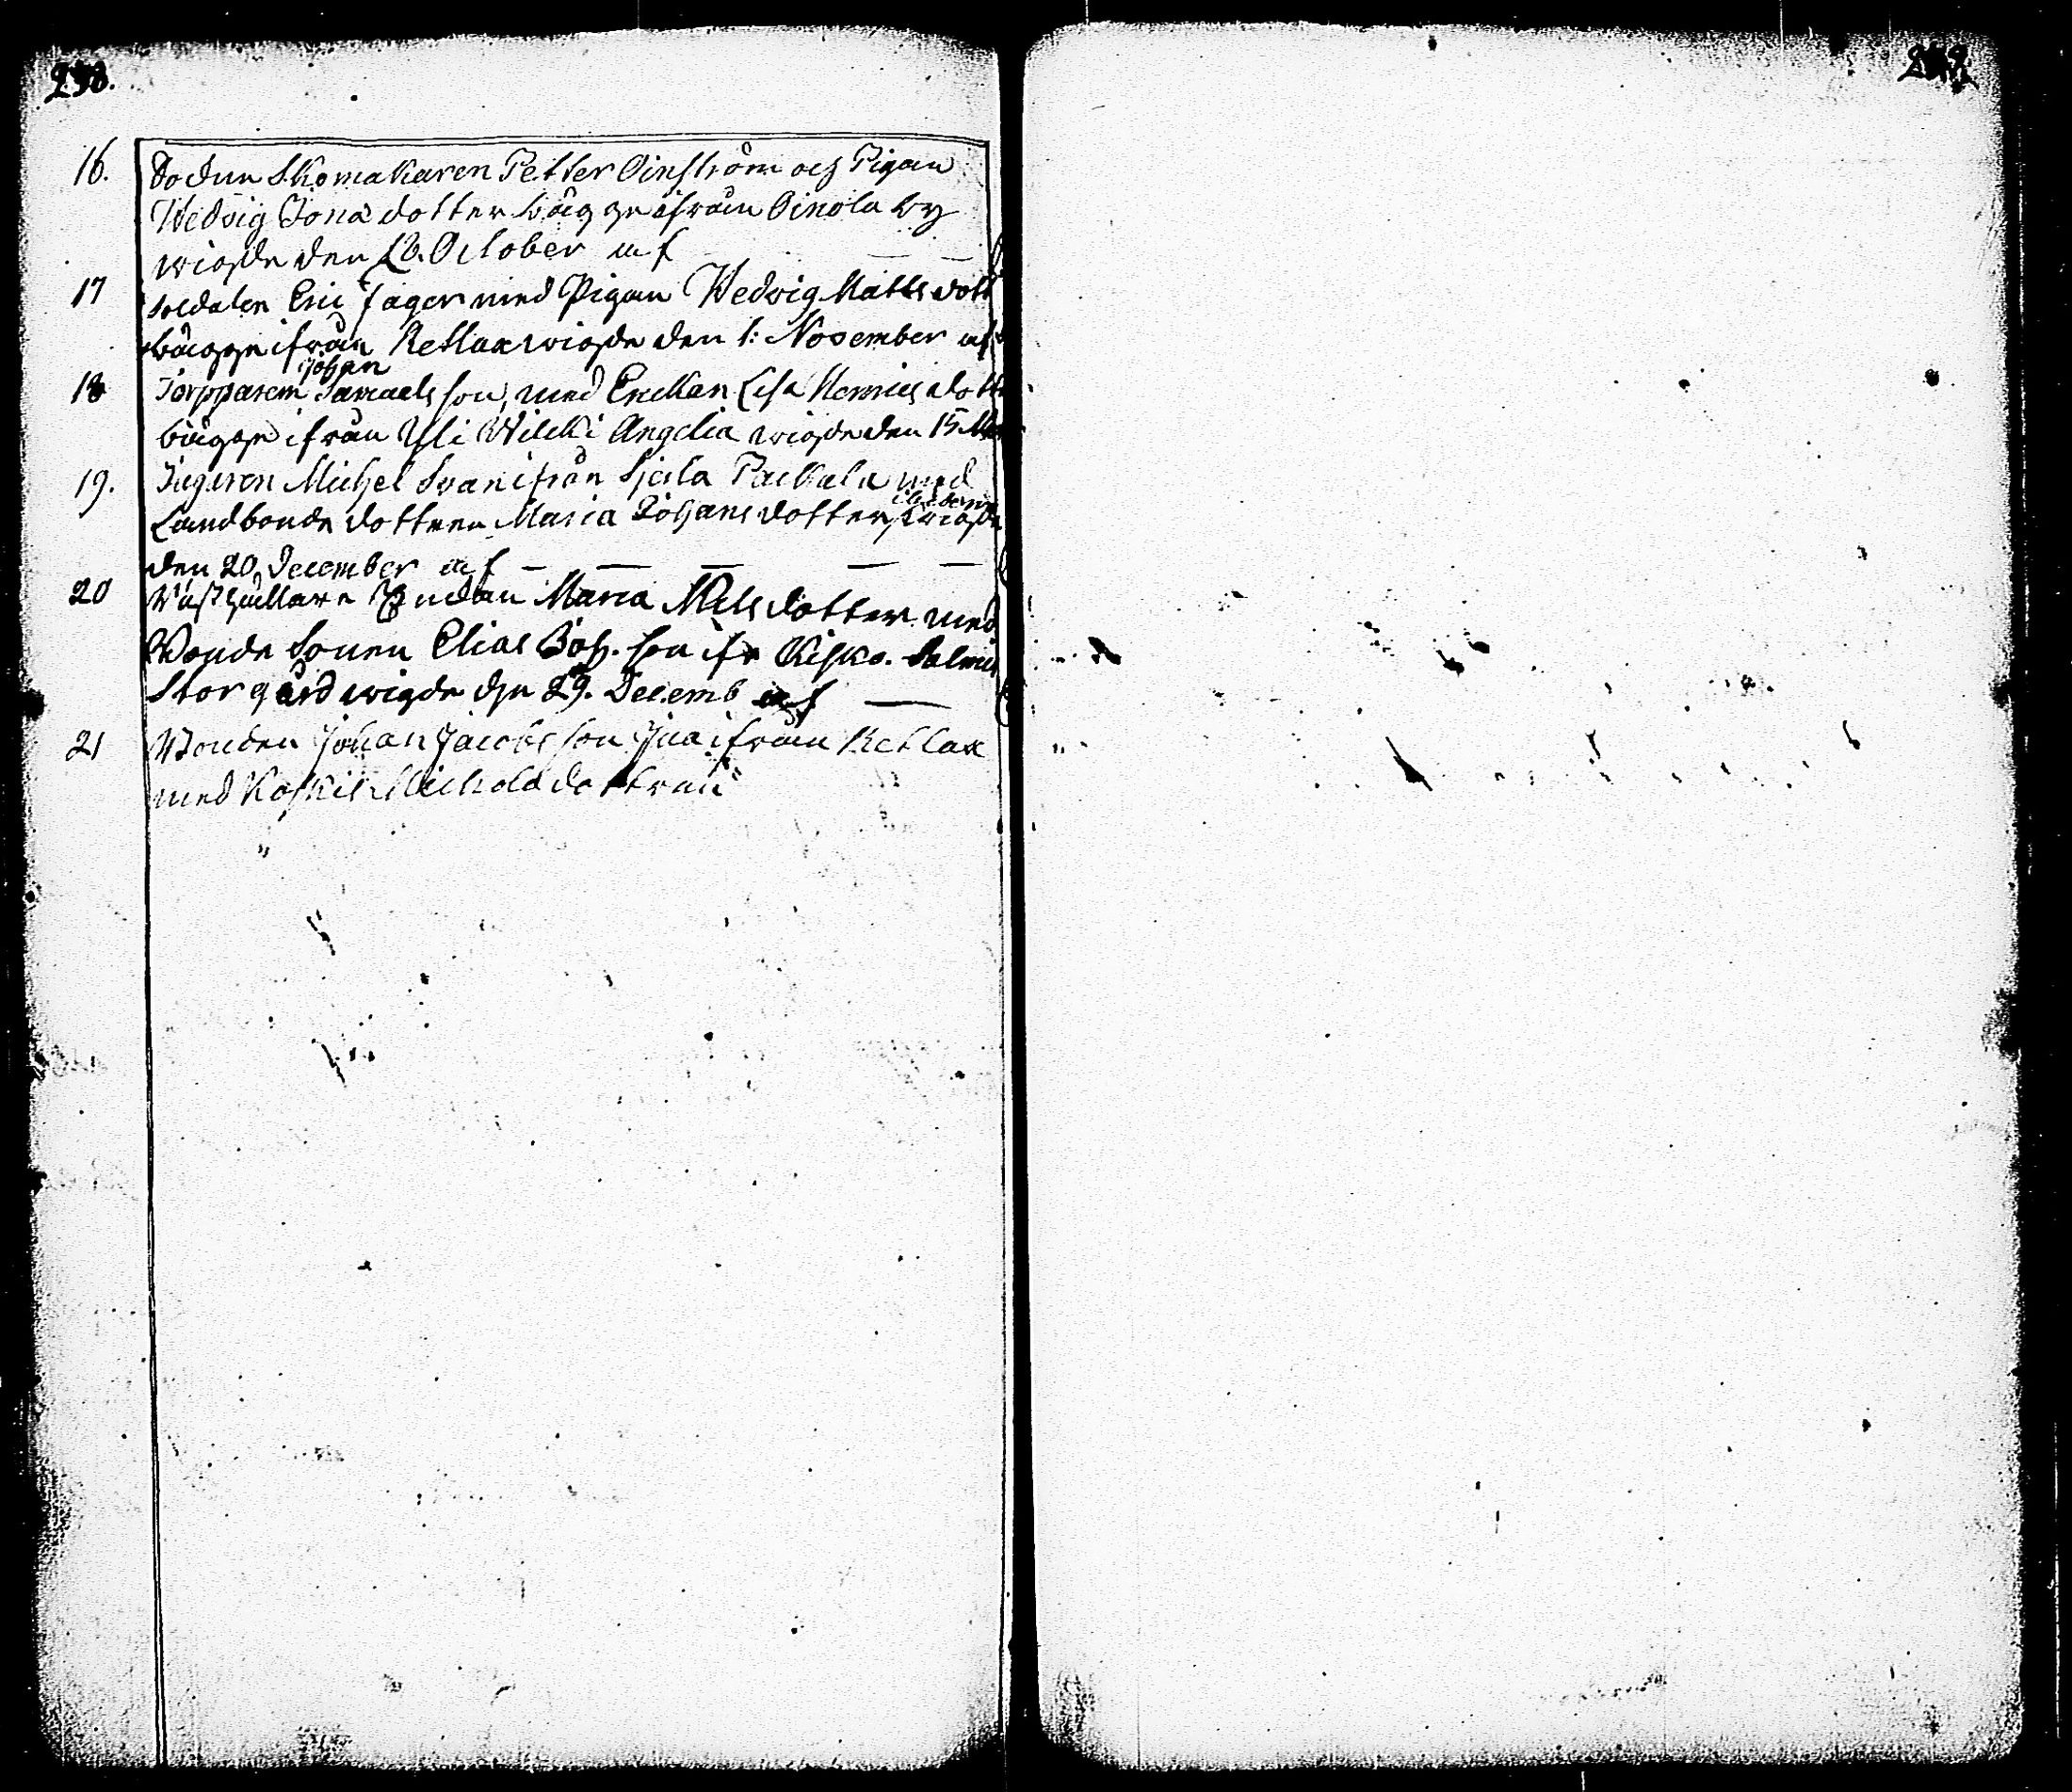 238.
16. Skomakaren Petter Oinström och Pigan
Hedvig Jona dotter bägge ifrån Oinola by
wigde den 18. October af
17 Soldaten Eric Fager med Pigan Hedvig Matts dott
bägge ifrån Ketlax wigde den 1: November af
Johan
18 Torpparen Samuels son, med Enckan Lisa Henrics dott
bägge ifrån Yli Wilcki Angelia wigde den 15
19. Michel Svan ifrån Sjela Packala med
Landbonde dottren Maria Johans dotter wigde
den 20 December af
20 Enckan Maria Mels dotter med
Bonde Sonen Elias Joh. son ifr Kisko.
Storgård wigde den 29. Decemb af
21 Bonden Johan Jacobs son ifrån Ketlax
med dottren